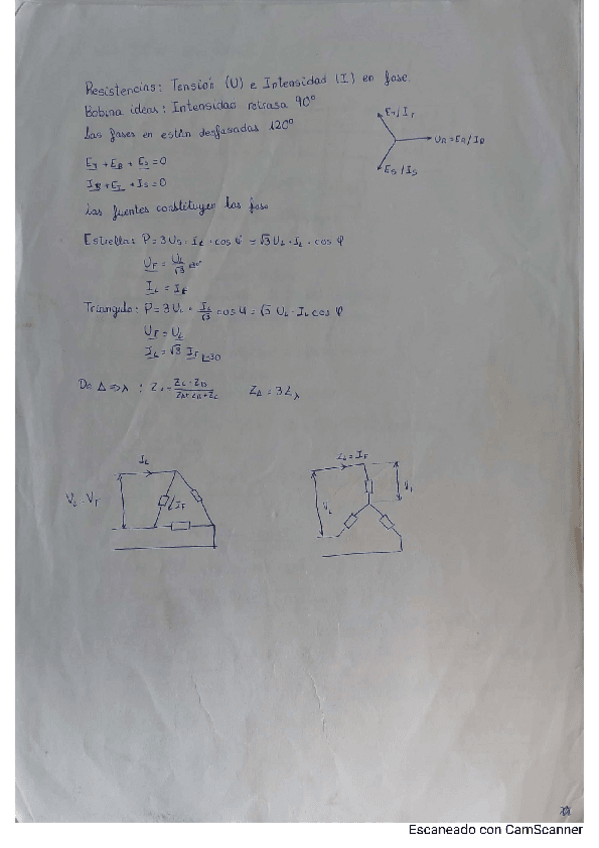 Resistencias: Tensión (U) e Intensidad (I) en fase.
Bobina ideas: Intensidad retrasa 90°
Las fases en están desfasadas 120°
E_T / I_T
U_R = E_R / I_R
E_S / I_S
E_T + E_R + E_S = 0
I_R + I_T + I_S = 0
Las fuentes constituyen las fase
Estrella: P = 3 U_F · I_L · cos φ = √3 U_L · I_L · cos φ
U_F = U_L/√3
I_L = I_F
Triángulo: P = 3 U_L · I_L/√3 cos φ = √3 U_L · I_L cos φ
U_F = U_L
I_L = √3 I_F ∠-30
De Δ => λ :
Z_Δ = 3 Z_λ
I_L
I_L = I_F
I_F
V_L
Escaneado con CamScanner